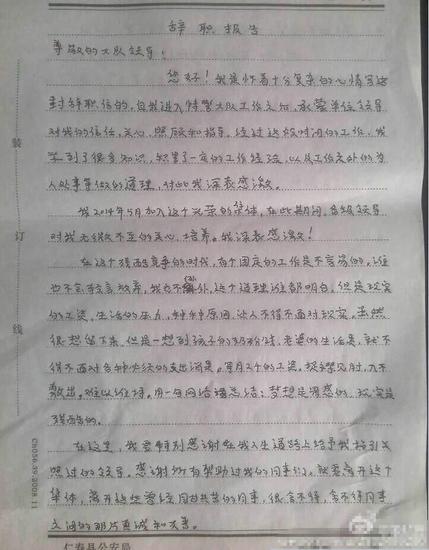 辞职报告
尊敬的大队领导:
您好!我是怀着十分复杂的心情写这
封辞职信的,自我进入特警大队工作之后,承蒙单位领导
对我的信任,关心,照顾和指导,经过这段时间的工作,我
学到了很多知识,积累了一定的工作经验,以及工作之外的为
人处事等做的道理,对此我深表感激。
我2014年5月加入这个光荣的集体,在此期间,各级领导
对我无微不至的关心,培养。我深表感激!
在这个残酷竞争的时代,有个固定的工作是不容易的,谁
也不会轻言放弃,我也不例外,这个道理谁都明白。但是现实
的工资,生活的压力,种种原因,让人不得不面对现实。虽然
很想留下来,但是一想到孩子的奶粉钱,老婆的生活费,就不
得不面对各种必须的支出问题。每月的工资,捉襟见肘,入不
敷出。难以维持。用一句网络语总结:梦想是美感的,现实是
残酷的。
在这里,我要特别感谢在我人生道路上给予我指引关
照过的领导。感谢所有帮助过我的同事们,就要离开这个
集体,离开这些曾经同甘共苦的同事,很舍不得,舍不得同事
之间的那片真诚和友善。
仁寿县公安局
装
订
线